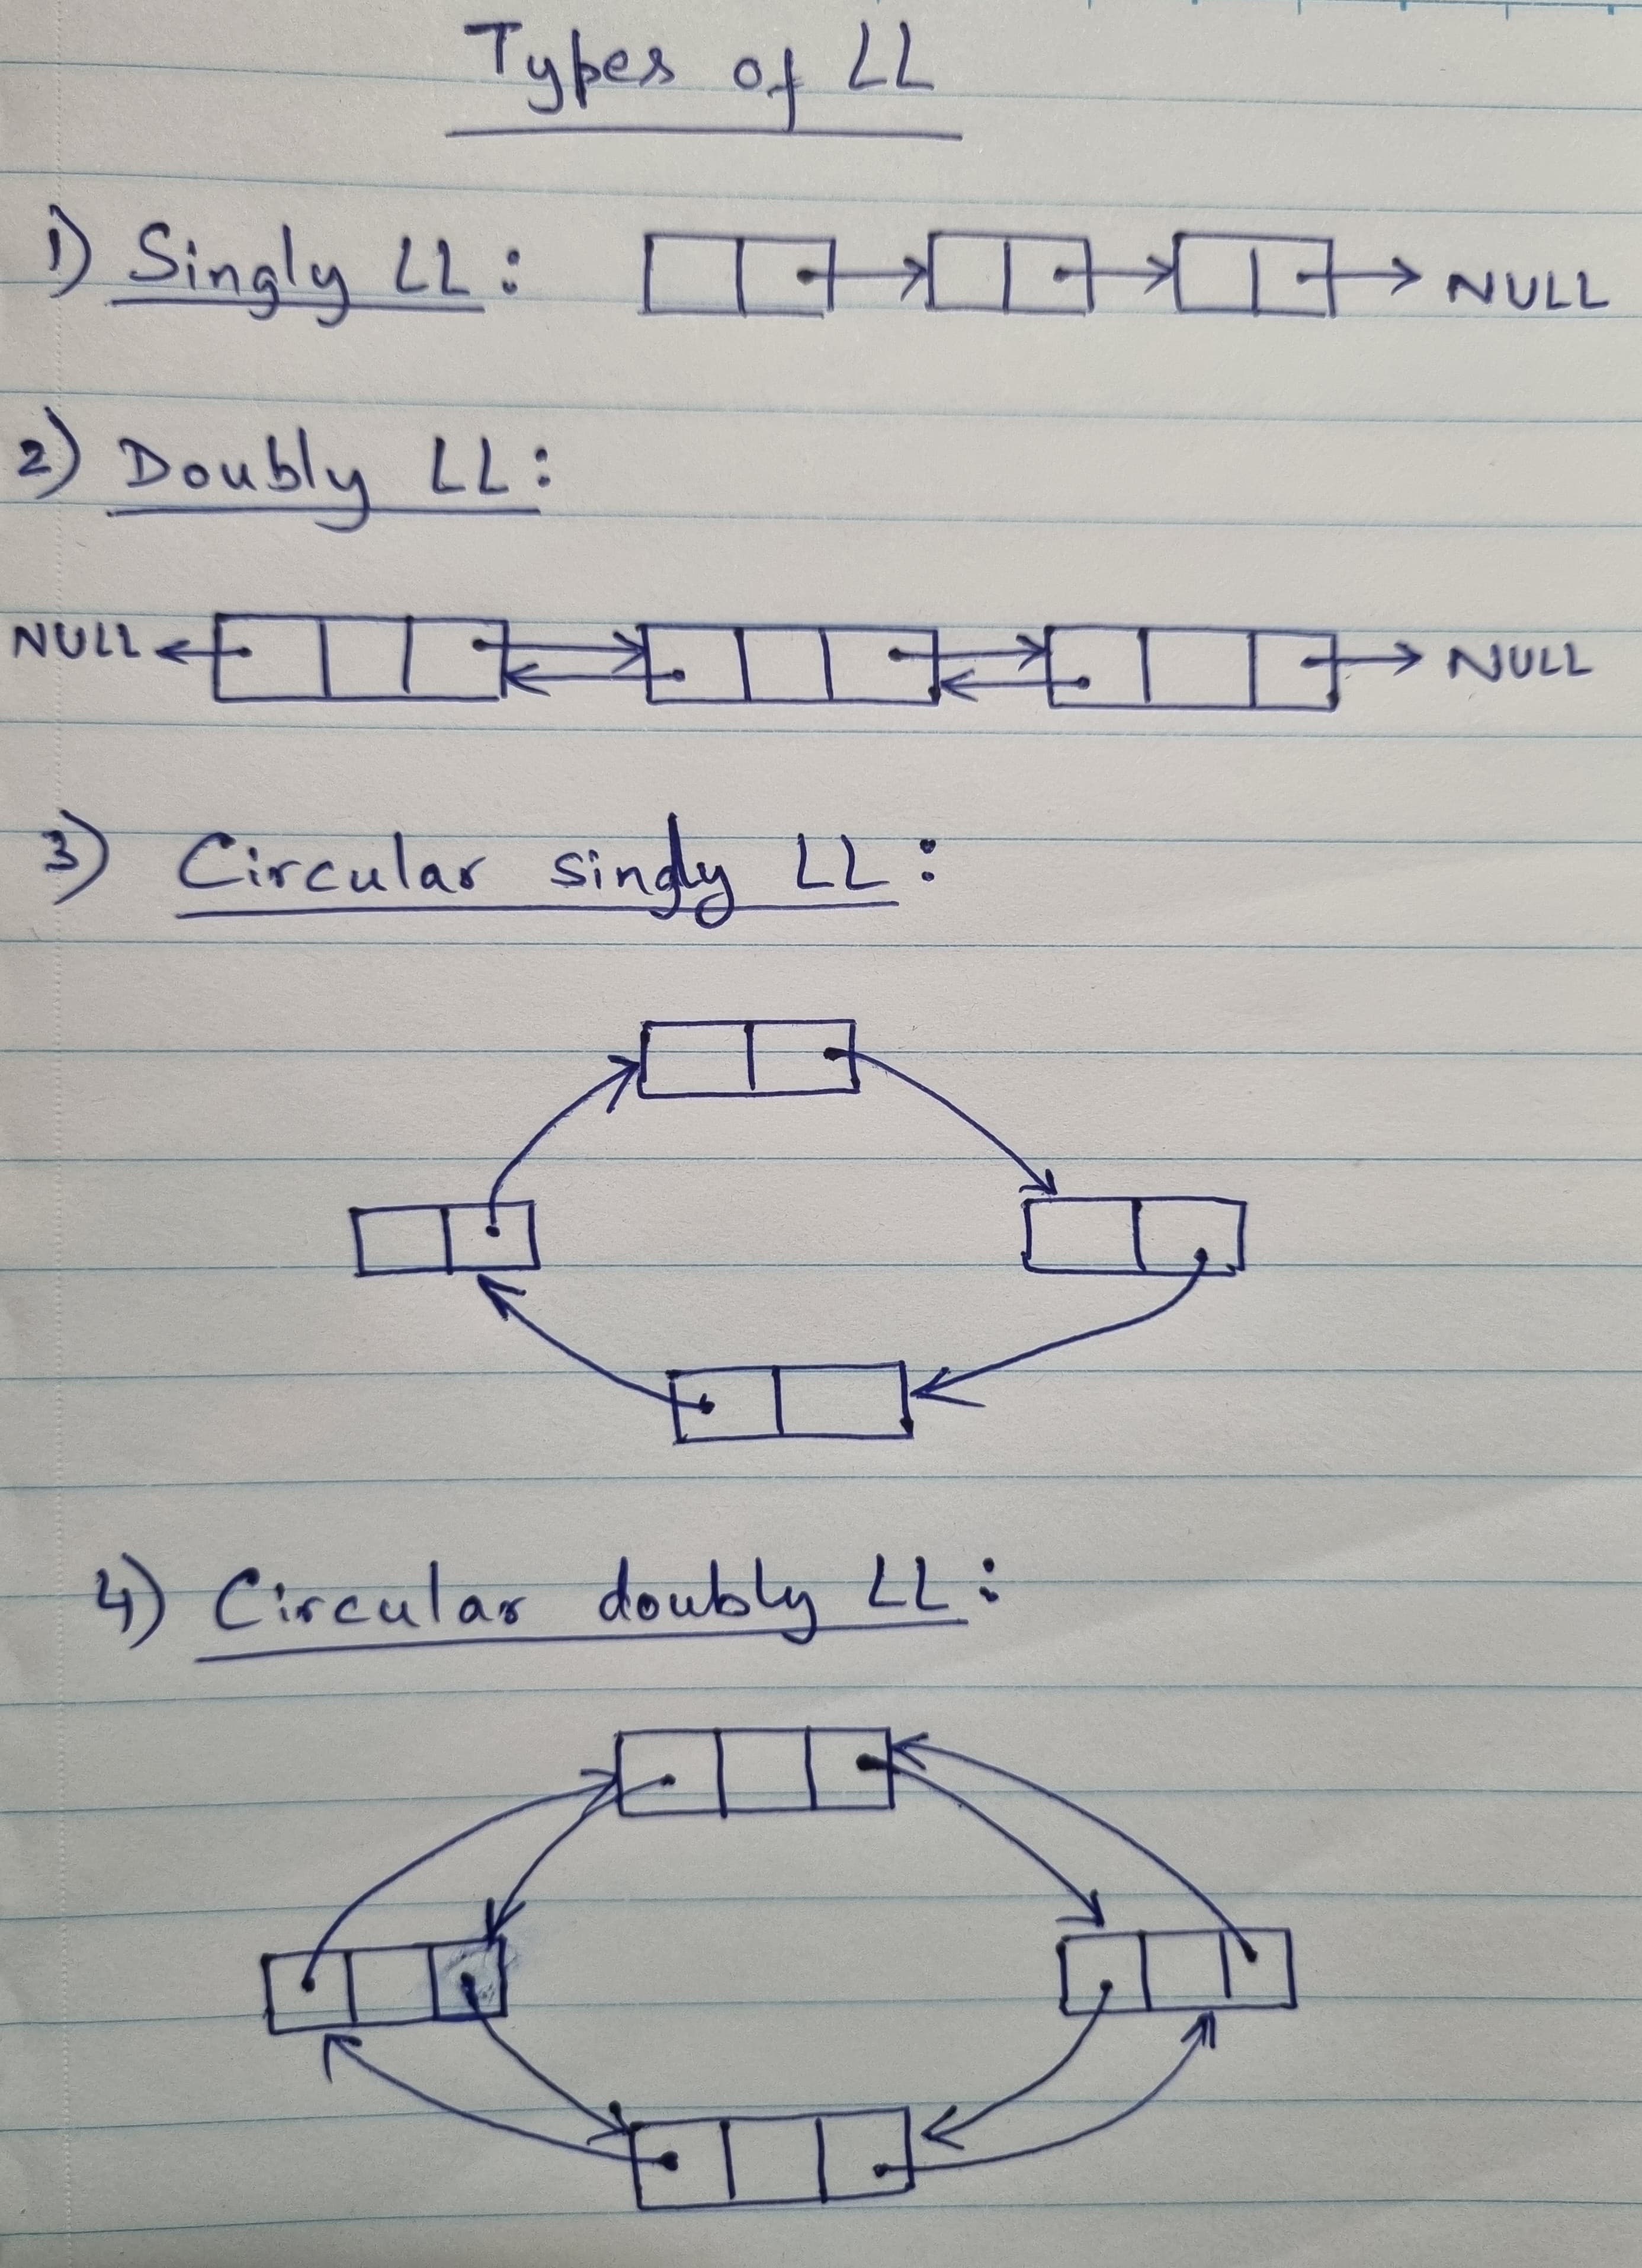 Types of LL
1) Singly LL: NULL
2) Doubly LL:
NULL NULL
3) Circular singly LL:
4) Circular doubly LL: